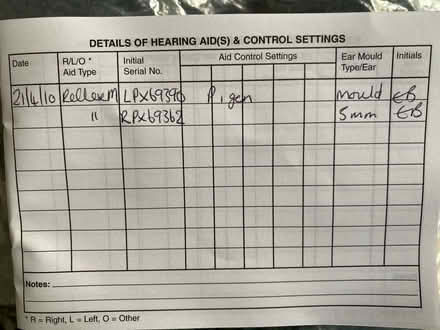 DETAILS OF HEARING AID(S) & CONTROL SETTINGS
Date R/L/O * Aid Type Initial Serial No. Aid Control Settings Ear Mould Type/Ear Initials
21/4/10 LPX69390 P. gen mould EB
" RPX69362 5mm EB
Notes:
* R = Right, L = Left, O = Other